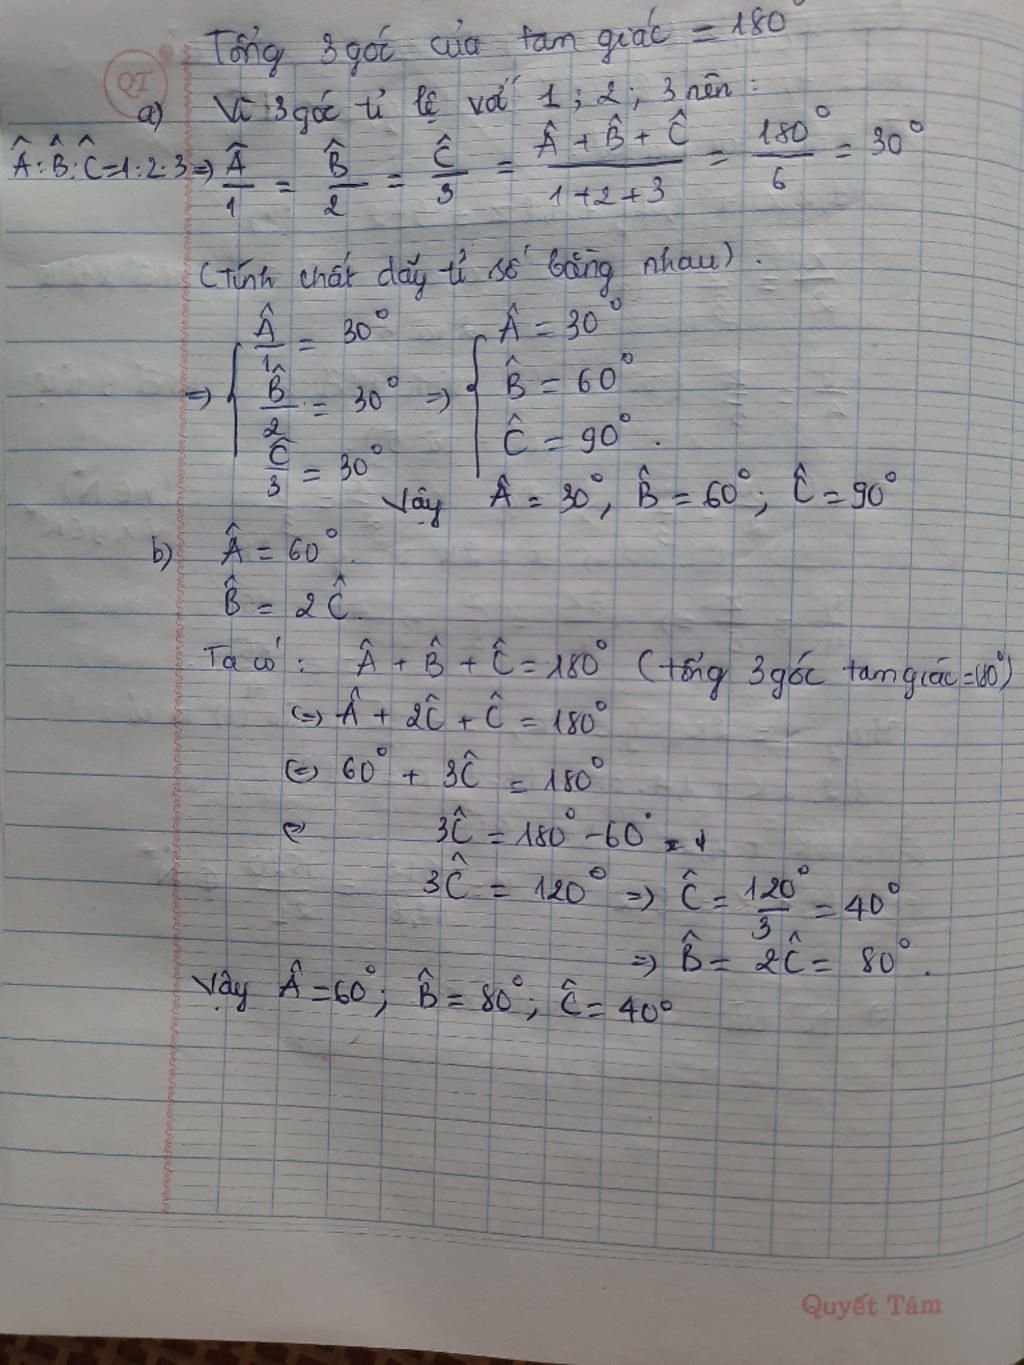 Tổng 3 góc của tam giác = 180°
QT
a) Vì 3 góc tỉ lệ với 1; 2; 3 nên:
Â : B̂ : Ĉ = 1 : 2 : 3 => Â/1 = B̂/2 = Ĉ/3 = (Â + B̂ + Ĉ)/(1+2+3) = 180°/6 = 30°
(Tính chất dãy tỉ số bằng nhau).
=> { Â/1 = 30° => { Â = 30°
B̂/2 = 30° B̂ = 60°
Ĉ/3 = 30° Ĉ = 90°.
Vậy Â = 30°, B̂ = 60°; Ĉ = 90°
b) Â = 60°.
B̂ = 2Ĉ.
Ta có: Â + B̂ + Ĉ = 180° (tổng 3 góc tam giác = 180°)
(=) Â + 2Ĉ + Ĉ = 180°
(=) 60° + 3Ĉ = 180°
(=) 3Ĉ = 180° - 60°
3Ĉ = 120° => Ĉ = 120°/3 = 40°
=> B̂ = 2Ĉ = 80°.
Vậy Â = 60°; B̂ = 80°; Ĉ = 40°
Quyết Tâm